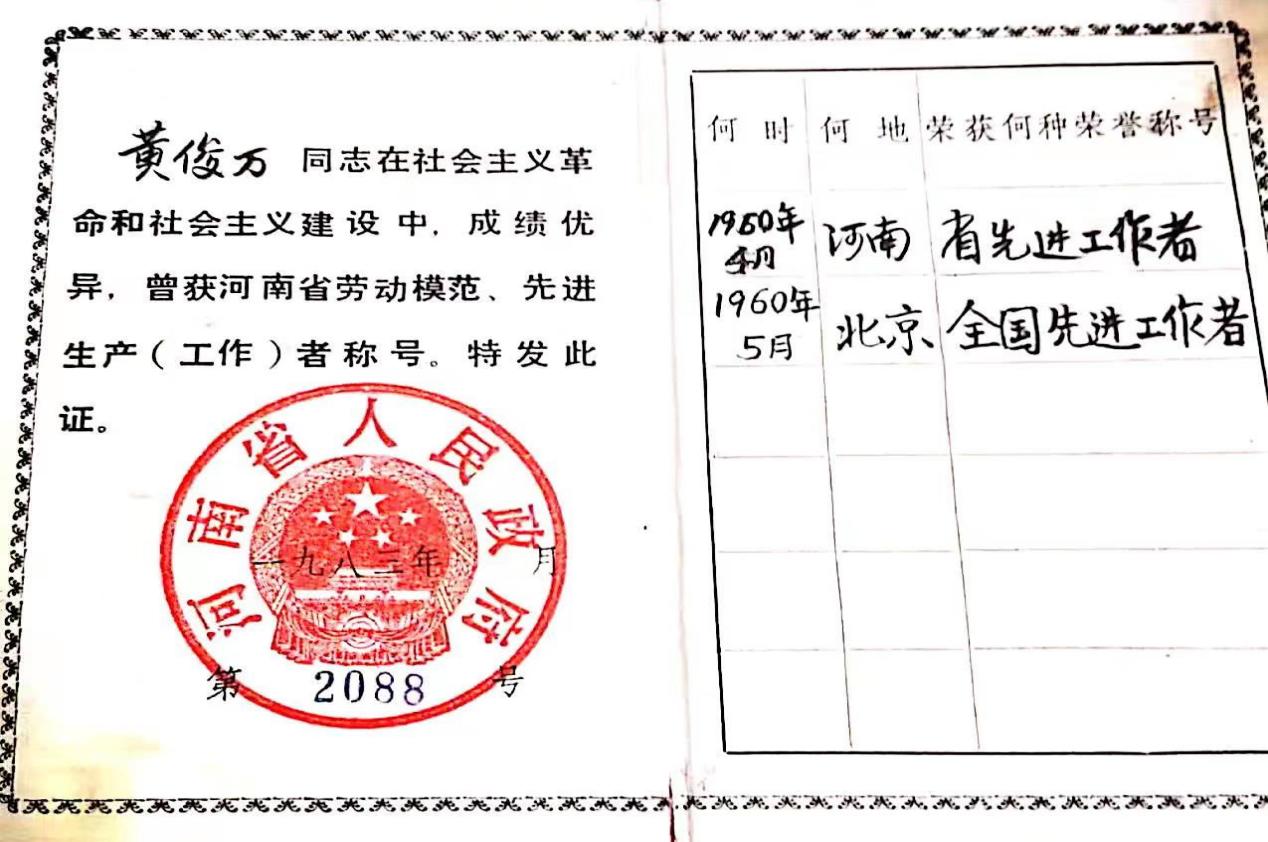 黄俊万 同志在社会主义革
命和社会主义建设中，成绩优
异，曾获河南省劳动模范、先进
生产（工作）者称号。特发此
证。
河南省人民政府
一九八二年 月
第 2088 号
何时 何地 荣获何种荣誉称号
1960年
4月 河南 省先进工作者
1960年
5月 北京 全国先进工作者